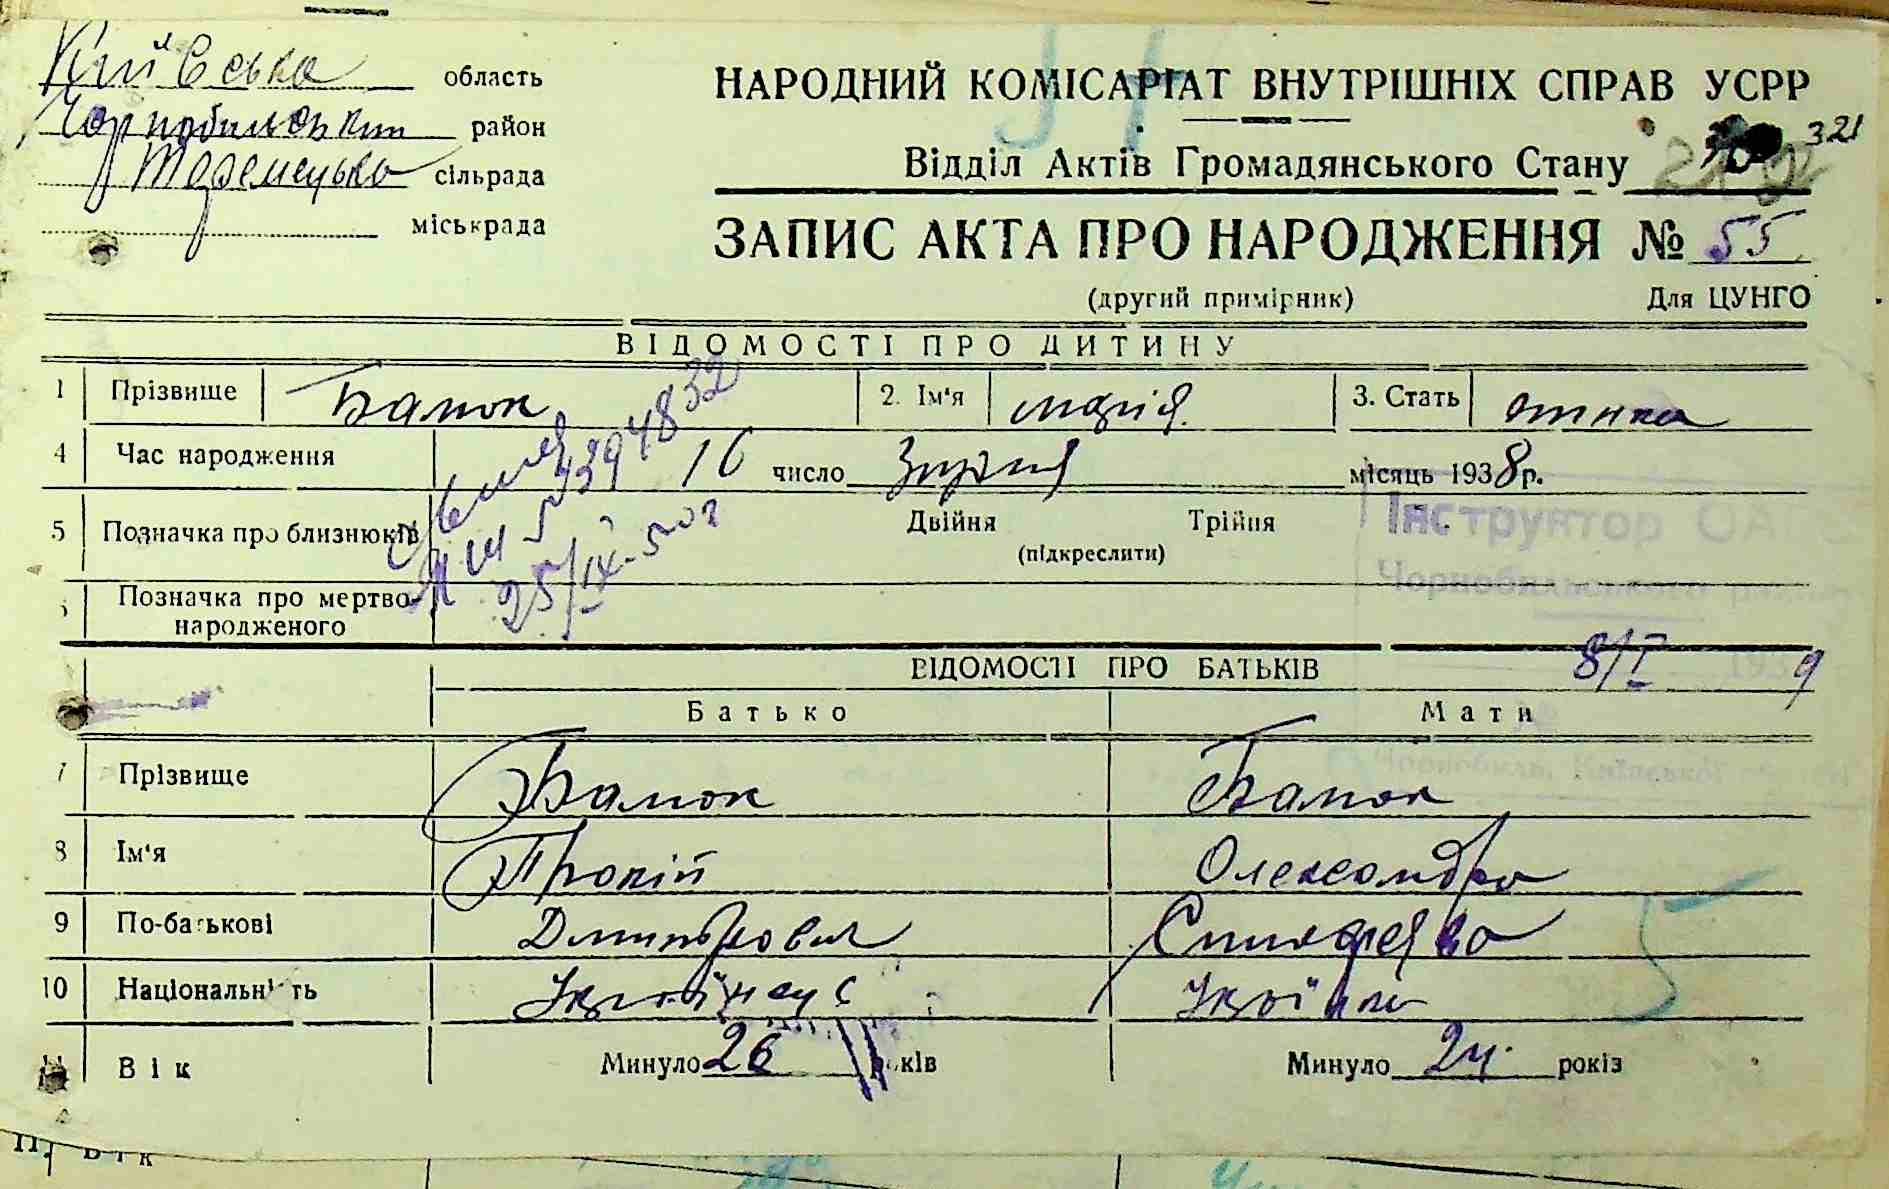 Київська область
Чорнобильський район
Теремецька сільрада
міськрада
НАРОДНИЙ КОМІСАРІАТ ВНУТРІШНІХ СПРАВ УСРР
321
Відділ Актів Громадянського Стану
ЗАПИС АКТА ПРО НАРОДЖЕННЯ № 55
(другий примірник) Для ЦУНГО
ВІДОМОСТІ ПРО ДИТИНУ
1 Прізвище Бамок 2. Ім'я марія 3. Стать
4 Час народження 16 число місяць 1938 р.
5 Позначка про близнюків Двійня Трійня
(підкреслити)
Позначка про мертво-
народженого
25/IX-50г
Інструктор
Чорнобильського
8/I 1939
Чорнобиль, Київської
ВІДОМОСТІ ПРО БАТЬКІВ
Батько Мати
7 Прізвище Бамок Бамок
8 Ім'я Прокіп Олександра
9 По-батькові Дмитрович
10 Національність Українець Україн
11 Вік Минуло 26 років Минуло 24 років
11 Вік